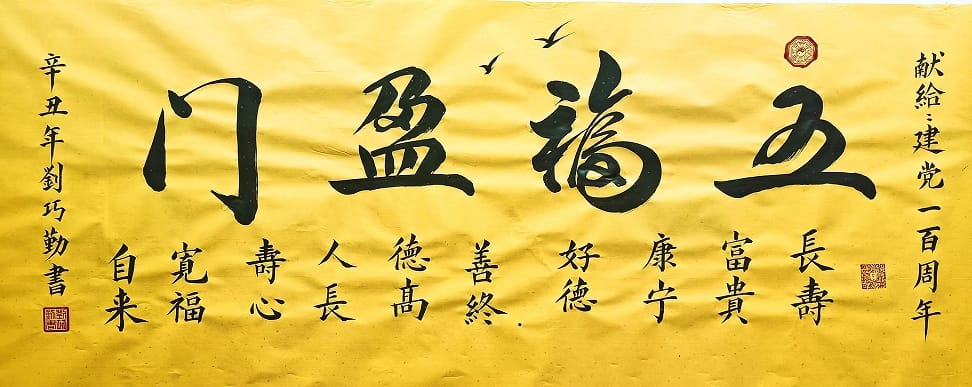 献给：建党一百周年
五福盈门
長壽
富貴
康宁
好德
善終.
德高
人長
壽心
寬福
自来
辛丑年劉巧勤書